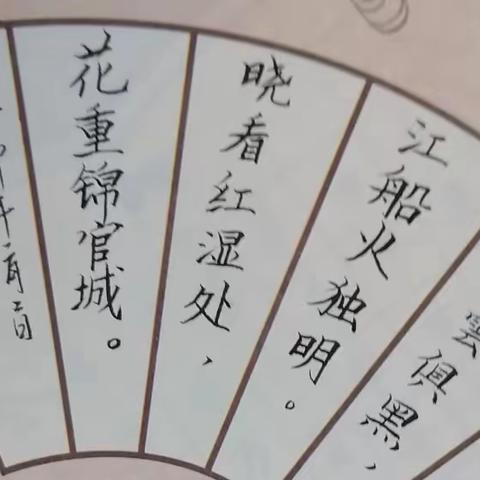 雲俱黑，
江船火独明。
晓看红湿处，
花重锦官城。